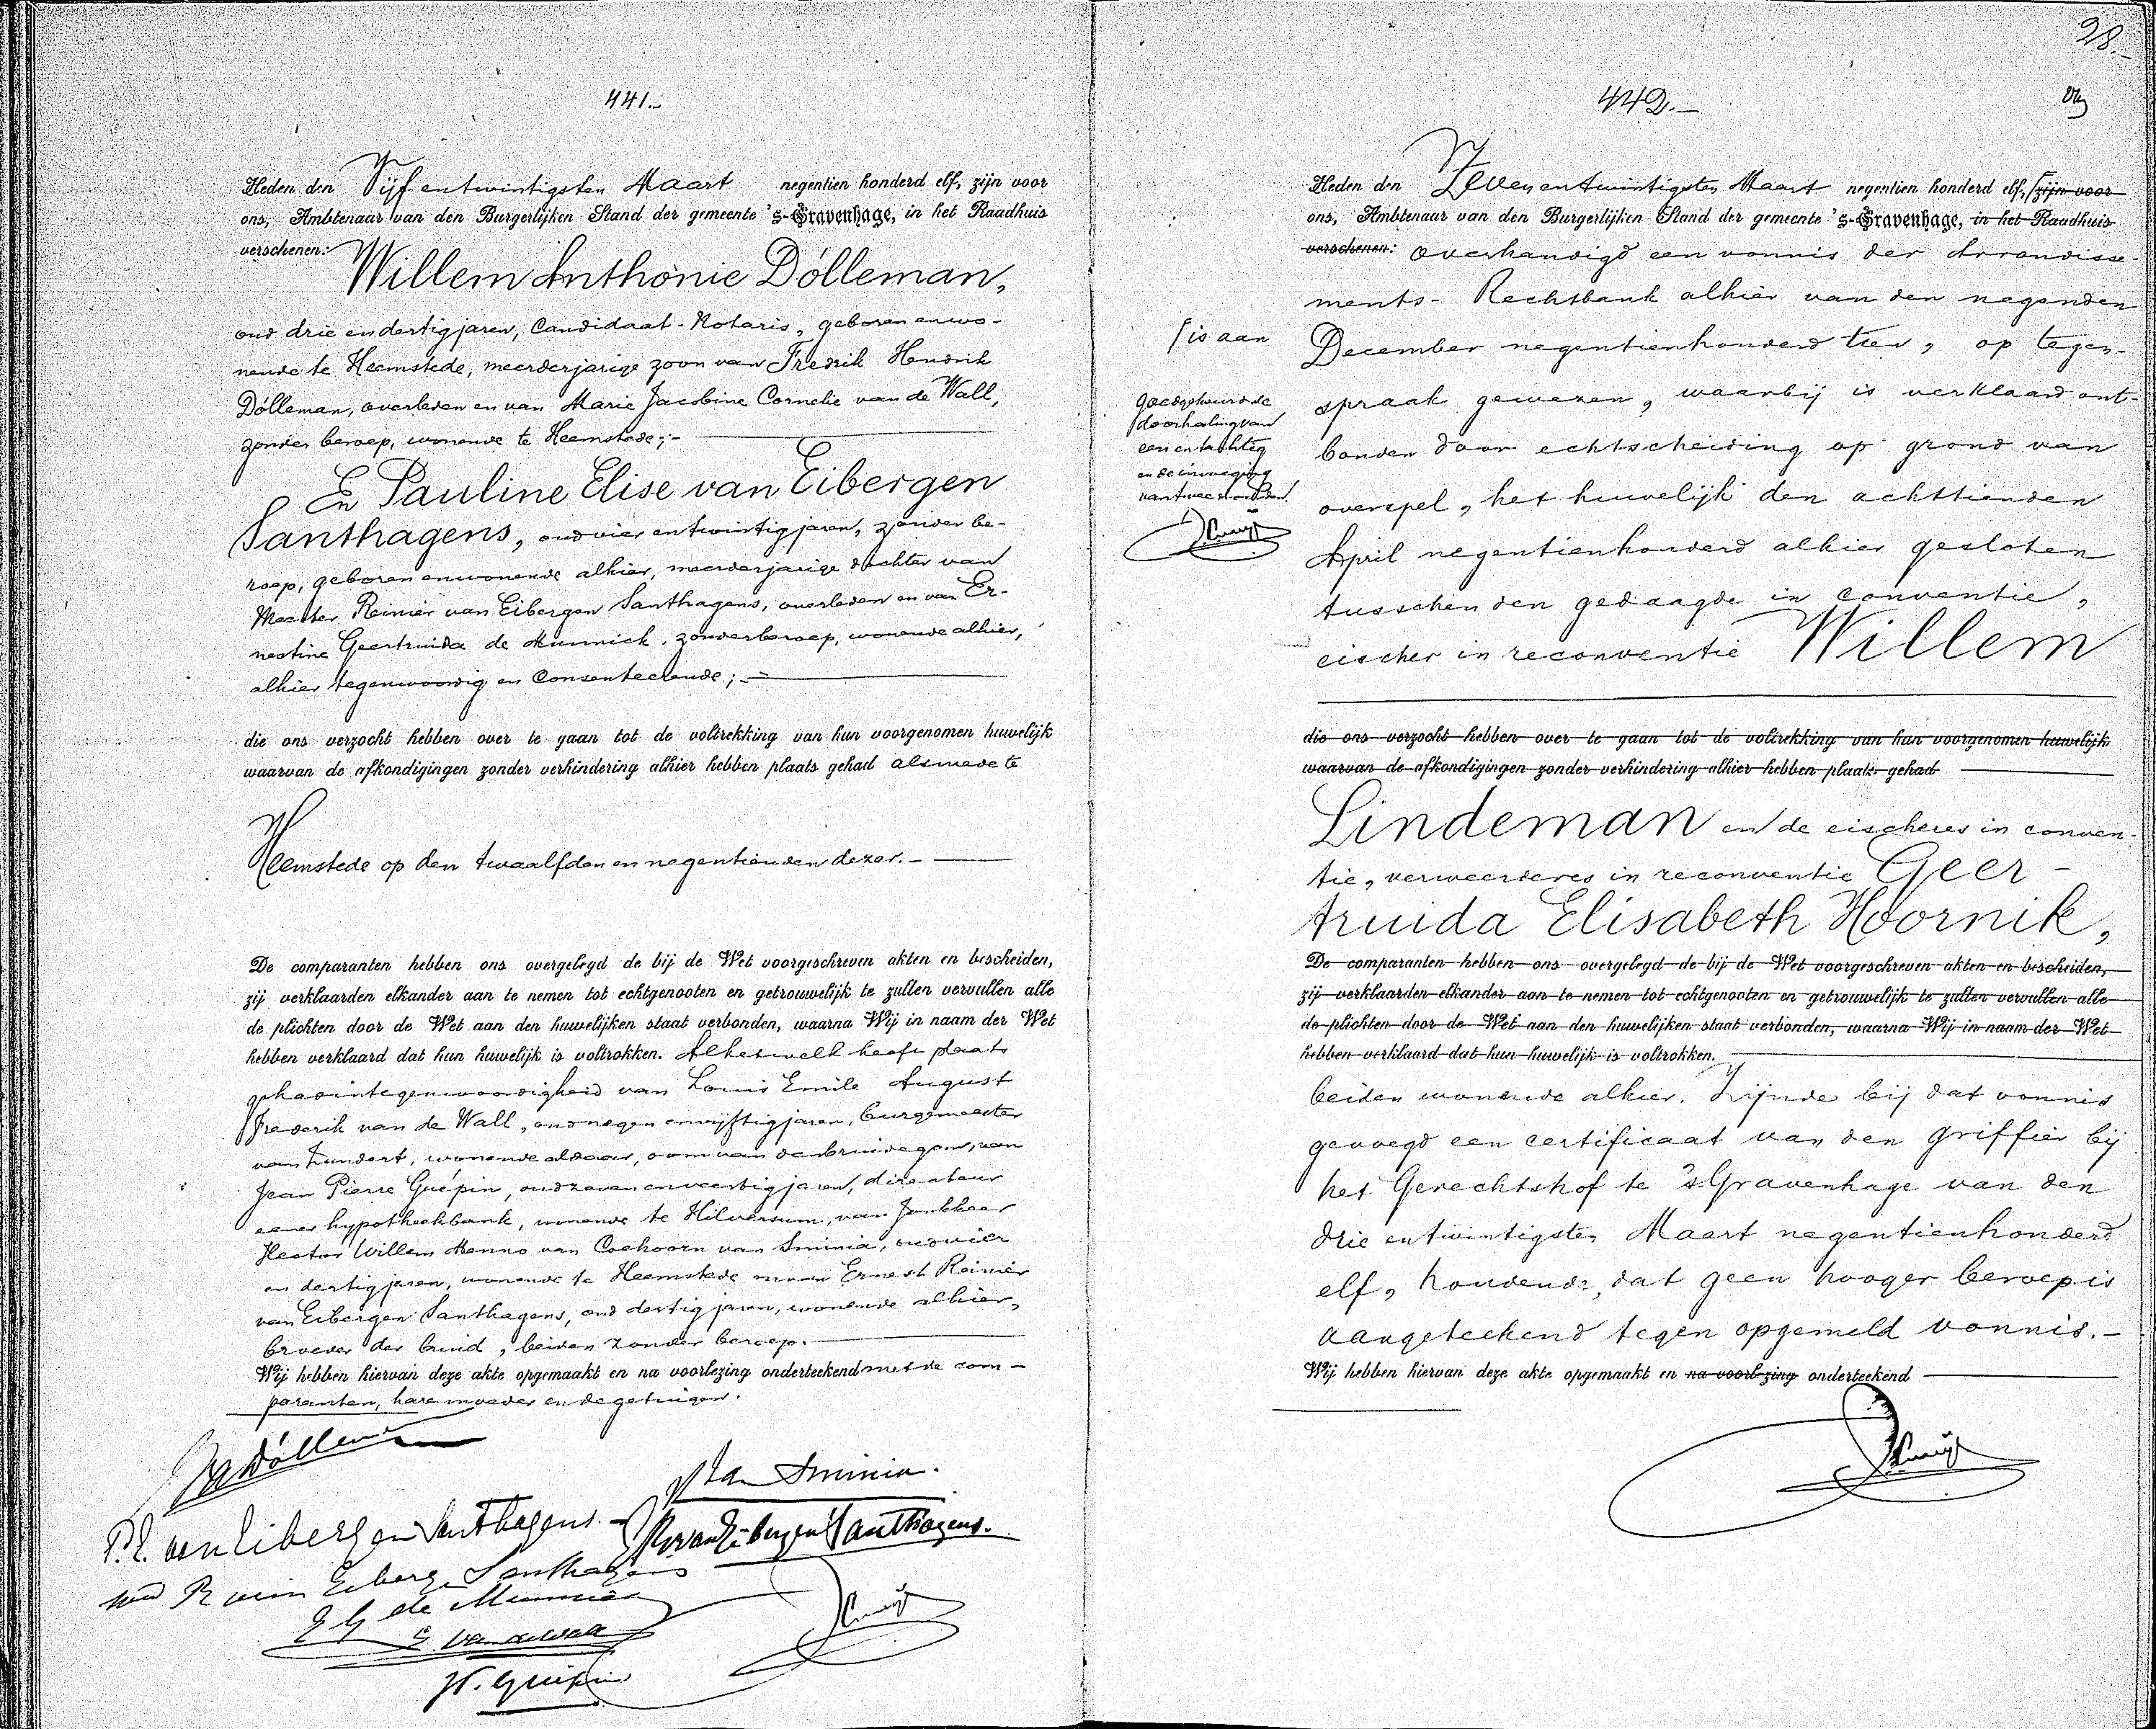 441.-
Heden den Vijfentwintigsten Maart negentien honderd elf, zijn voor
ons, Ambtenaar van den Burgerlijken Stand der gemeente 's-Gravenhage, in het Raadhuis
verschenen:
Willem Anthonie Dólleman,
oud drie en dertig jaren, Candidaat-Notaris, geboren en wo-
nende te Heemstede, meerderjarige zoon van Fredrik Hendrik
Dólleman, overleden en van Marie Jacobine Cornelie van de Wall,
zonder beroep, wonende te Heemstede;-
En Pauline Elise van Eibergen
Santhagens, oud vier en twintig jaren, zonder be-
roep, geboren en wonende alhier, meerderjarige dochter van
Meester Reinier van Eibergen Santhagens, overleden en van Er-
nestine Geertruida de Munnick, zonder beroep, wonende alhier,
alhier tegenwoordig en Consenteerende;-
die ons verzocht hebben over te gaan tot de voltrekking van hun voorgenomen huwelijk
waarvan de afkondigingen zonder verhindering alhier hebben plaats gehad alsmede te
Heemstede op den twaalfden en negentienden dezer.-
De comparanten hebben ons overgelegd de bij de Wet voorgeschreven akten en bescheiden,
zij verklaarden elkander aan te nemen tot echtgenooten en getrouwelijk te zullen vervullen alle
de plichten door de Wet aan den huwelijken staat verbonden, waarna Wij in naam der Wet
hebben verklaard dat hun huwelijk is voltrokken. Alhetwelk heeft plaats
gehad in tegenwoordigheid van Louis Emile August
Frederik van de Wall, oud negen en vijftig jaren, burgemeester
van Zundert, wonende aldaar, oom van den bruidegom, van
Jean Pierre Guépin, oud zeven en veertig jaren, directeur
eener hypotheekbank, wonende te Hilversum, van Jonkheer
Hector Willem Menno van Coehoorn van Sminia, oud vier
en dertig jaren, wonende te Heemstede en van Ernest Reinier
van Eibergen Santhagens, oud dertig jaren, wonende alhier,
broeder der bruid, beiden zonder beroep.
Wij hebben hiervan deze akte opgemaakt en na voorlezing onderteekend met de com-
paranten, hare moeder en de getuigen.
WADólleman
van Sminia.
P.E. van Eibergen Santhagens.
R van Eibergen Santhagens.
wed R van Eibergen Santhagens
E G de Munnick
van de Wall
J.P. Guépin
28.
442.-
Heden den Zevenentwintigsten Maart negentien honderd elf, zijn voor
ons, Ambtenaar van den Burgerlijken Stand der gemeente 's-Gravenhage, in het Raadhuis
verschenen: overhandigd een vonnis der Arrondisse-
ments-Rechtbank alhier van den negenden
December negentienhonderd tien, op tegen-
spraak gewezen, waarbij is verklaard ont-
bonden door echtscheiding op grond van
overspel, het huwelijk den achttienden
April negentienhonderd alhier gesloten
tusschen den gedaagde in conventie,
eischer in reconventie Willem
die ons verzocht hebben over te gaan tot de voltrekking van hun voorgenomen huwelijk
waarvan de afkondigingen zonder verhindering alhier hebben plaats gehad
Lindeman en de eischeres in conven-
tie, verweerderes in reconventie Geer-
truida Elisabeth Hoornik,
De comparanten hebben ons overgelegd de bij de Wet voorgeschreven akten en bescheiden,
zij verklaarden elkander aan te nemen tot echtgenooten en getrouwelijk te zullen vervullen alle
de plichten door de Wet aan den huwelijken staat verbonden, waarna Wij in naam der Wet
hebben verklaard dat hun huwelijk is voltrokken.
beiden wonende alhier. Zijnde bij dat vonnis
gevoegd een certificaat van den griffier bij
het Gerechtshof te 's-Gravenhage van den
drie en twintigsten Maart negentienhonderd
elf, houdende, dat geen hooger beroep is
aangeteekend tegen opgemeld vonnis.-
Wij hebben hiervan deze akte opgemaakt en na voorlezing onderteekend
is aan
Goedgekeurd de
doorhaling van
een en tachtig
en de invoeging
van twee woorden.